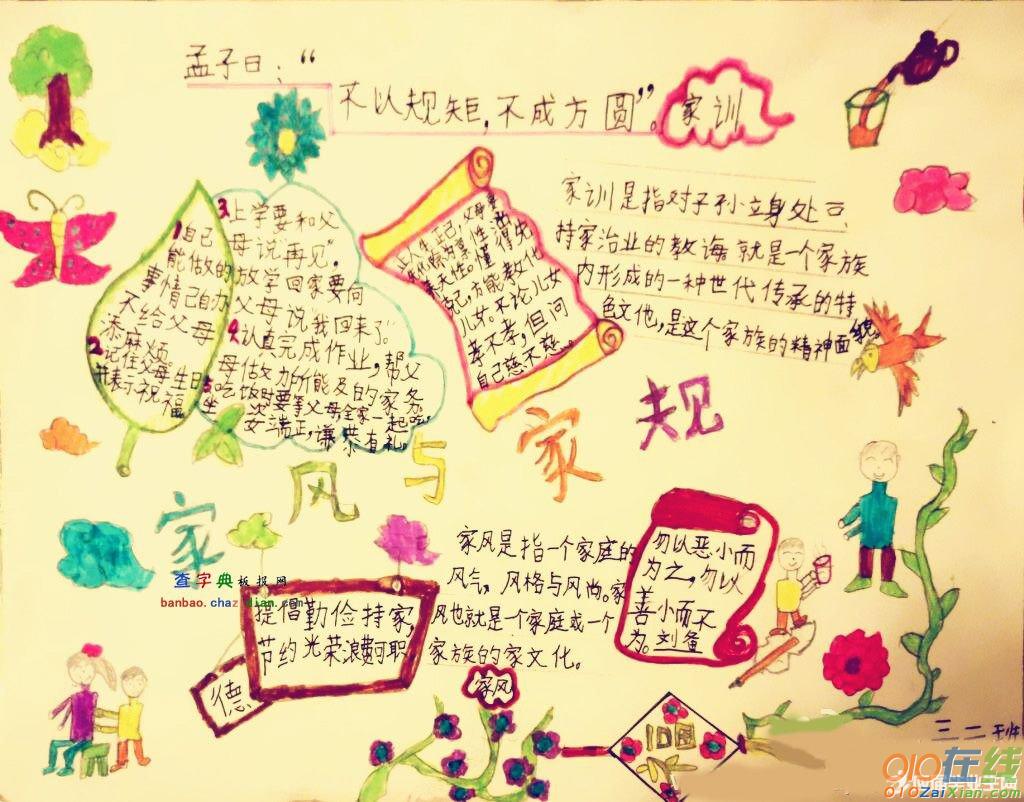 孟子曰："
不以规矩,不成方圆"。
家训
家训是指对子孙立身处
持家治业的教诲,就是一个家族
内形成的一种世代传承的特
色文化,是这个家族的精神面貌。
1自己
能做的
事情己自办
不给父母
添麻烦
2记住父母生日
并表示祝福
3上学要和父
母说"再见"。
放学回家要向
父母说"我回来了"。
4认真完成作业,帮父
母做力所能及的家务
5吃饭时要等父母全家一起吃,
坐姿端正,谦恭有礼。
克己方能教化
儿女。不论儿女
孝不孝,但问
自己慈不慈。
家风与家规
家风是指一个家庭的
风气,风格与风尚。家
风也就是一个家庭或一个
家族的家文化。
勿以恶小而
为之,勿以
善小而不
为。刘备
查字典板报网
banbao.chazidian.com
提倡勤俭持家,
节约光荣浪费可耻
德
家风
三二
010在线
010ZaiXian.com